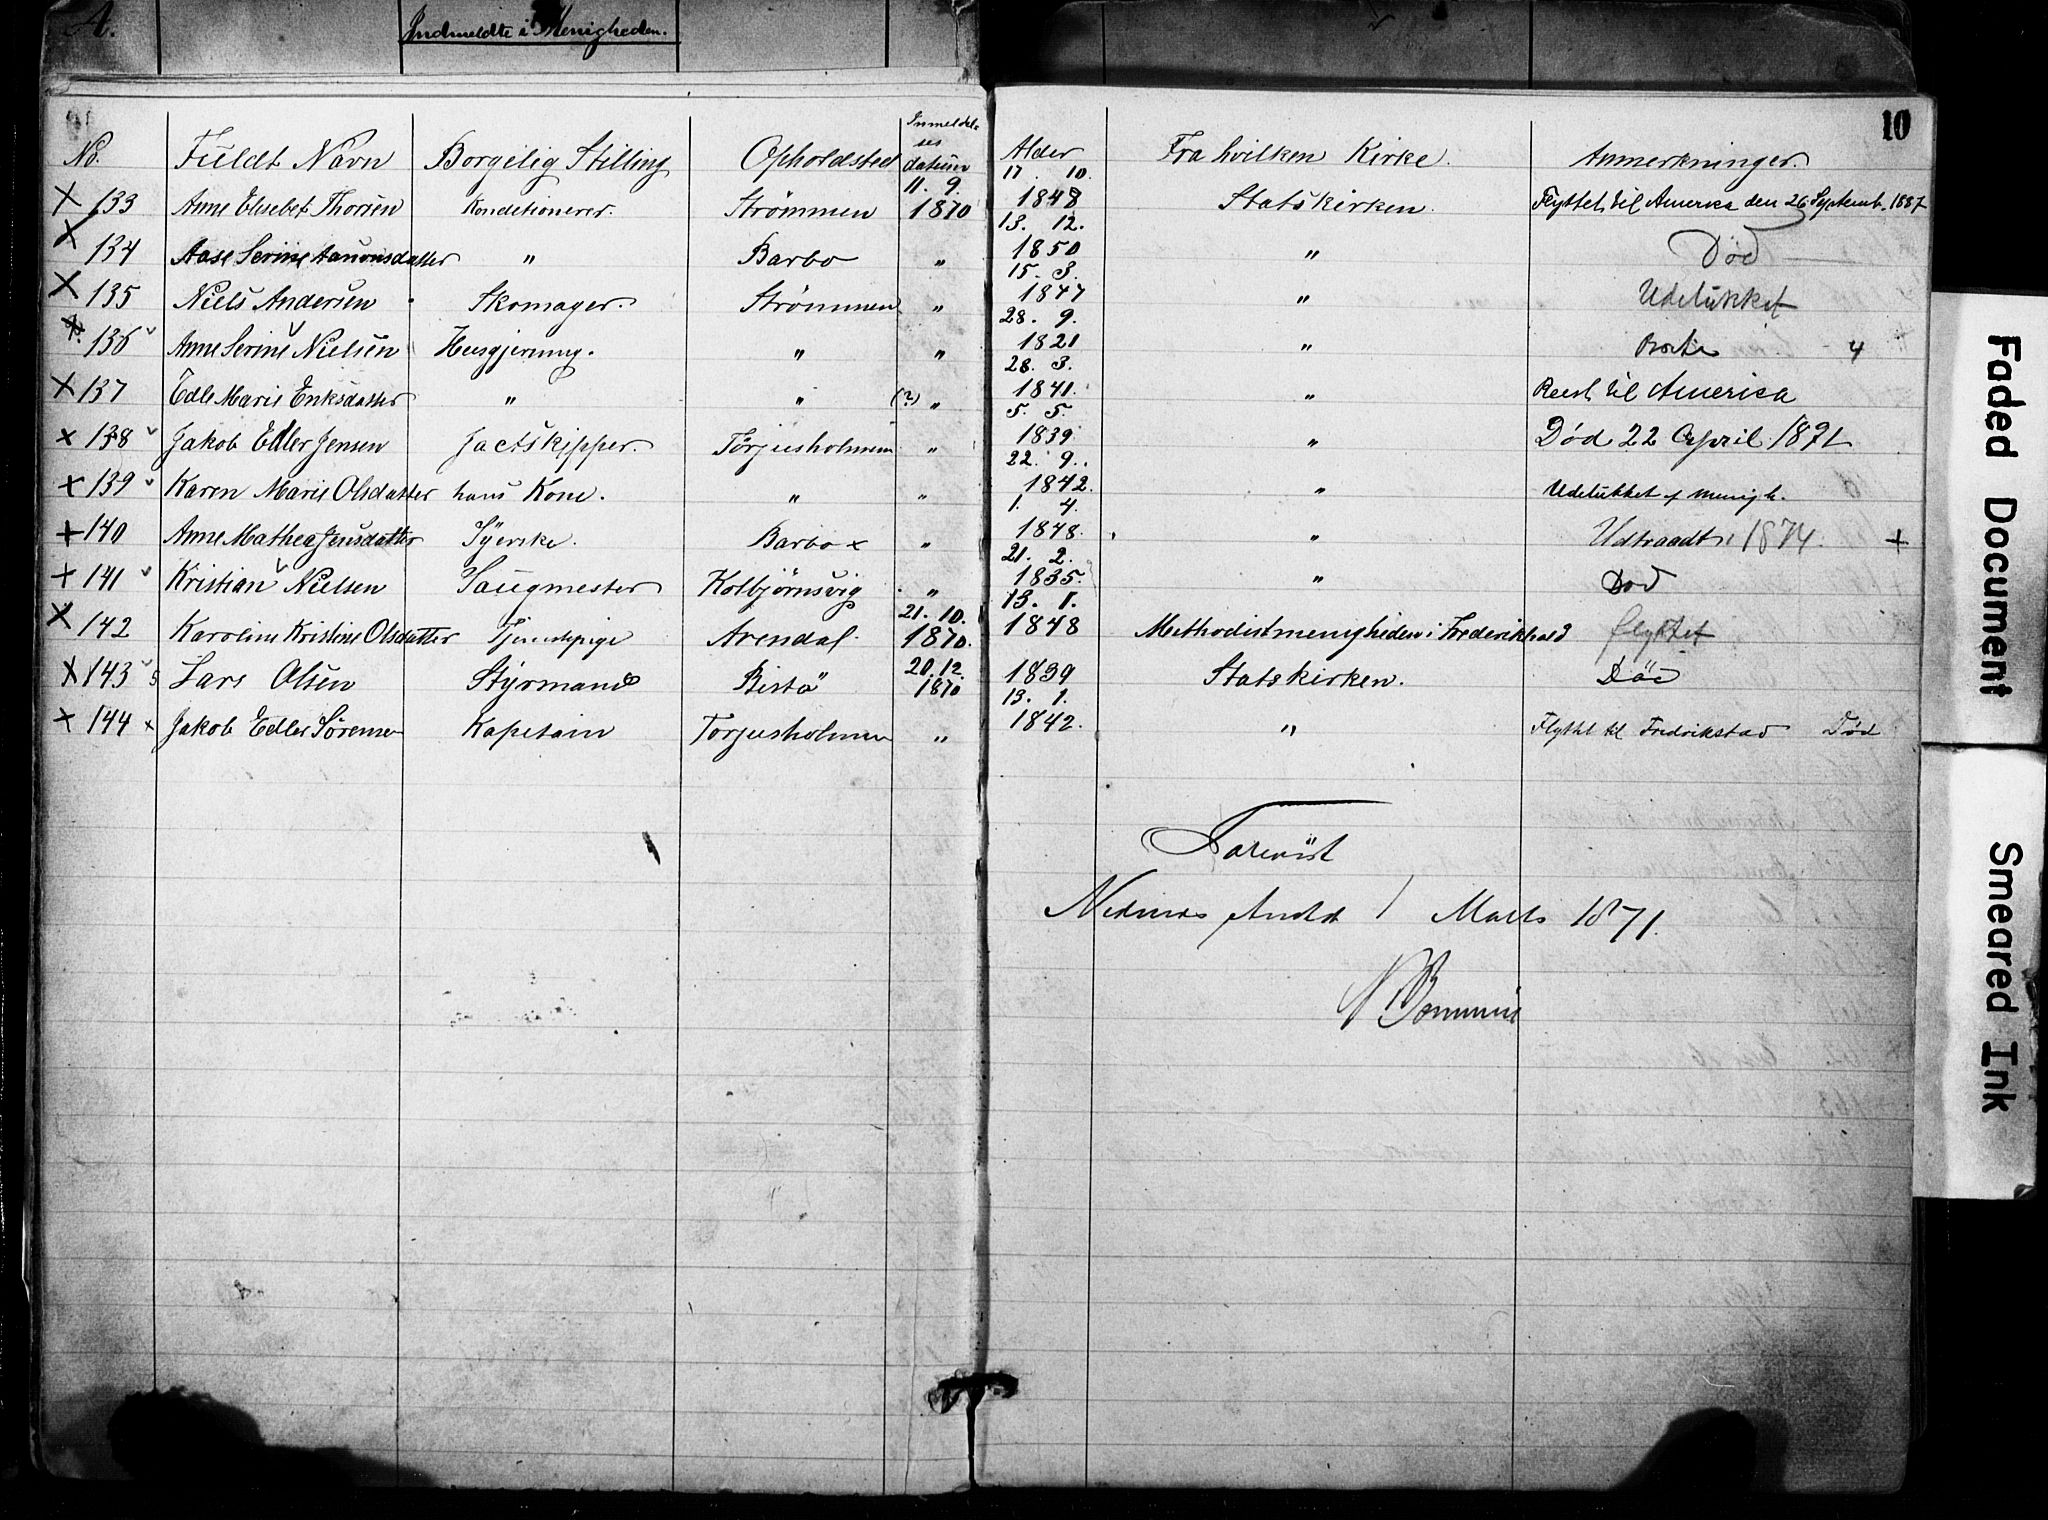 A.
Indmeldte i Menigheden.
10
No. Fuldt Navn Borgelig Stilling Opholdsted Inmeldel-ses datum Alder Fra hvilken Kirke. Anmerkninger.
X 133 Anne Elisebet Thorsen Konditionerer. Strømmen 11. 9. 1870 17. 10. 1848 Statskirken. Flyttet til America den 26 Septemb. 1887
X 134 Aase Serine Aanonsdatter " Barbo " 13. 12. 1850 " Død
X 135 Niels Andersen Skomager. Strømmen " 15. 3. 1847 " Udelukket
X 136 Anne Serine Nielsen Husgjerning. " " 28. 9. 1821 " 4
X 137 Edle Marie Eriksdatter " " (?) " 28. 3. 1841. " Reest til America
X 138 Jakob Edler Jensen Jactskipper. Torjusholmen " 5. 5. 1839 " Død 22 April 1891
X 139 Karen Marie Olsdatter hans Kone. " " 22. 9. 1842. " Udelukket af menigh.
+ 140 Anne Mathea Jensdatter Syerske. Barbo x " 1. 4. 1848. " Udtraadt 1874. +
+ 141 Kristian Nielsen Saugmester Kolbjörnsvig " 21. 2. 1835. " Død
X 142 Karoline Kristine Olsdatter Tjenestepige Arendal. 21. 10. 1870. 13. 1. 1848 Methodistmenigheden i Frederikhald flyttet
X 143 Lars Olsen Styrmand Bistö 20. 12. 1870 1839 Statskirken. Død
X 144 x Jakob Edler Sørensen Kapetain Torjusholmen " 13. 1. 1842. " Flyttet til Fredrikstad Død
Forevist
Nedenes Amt 1 Marts 1871.
Faded Document
Smeared Ink